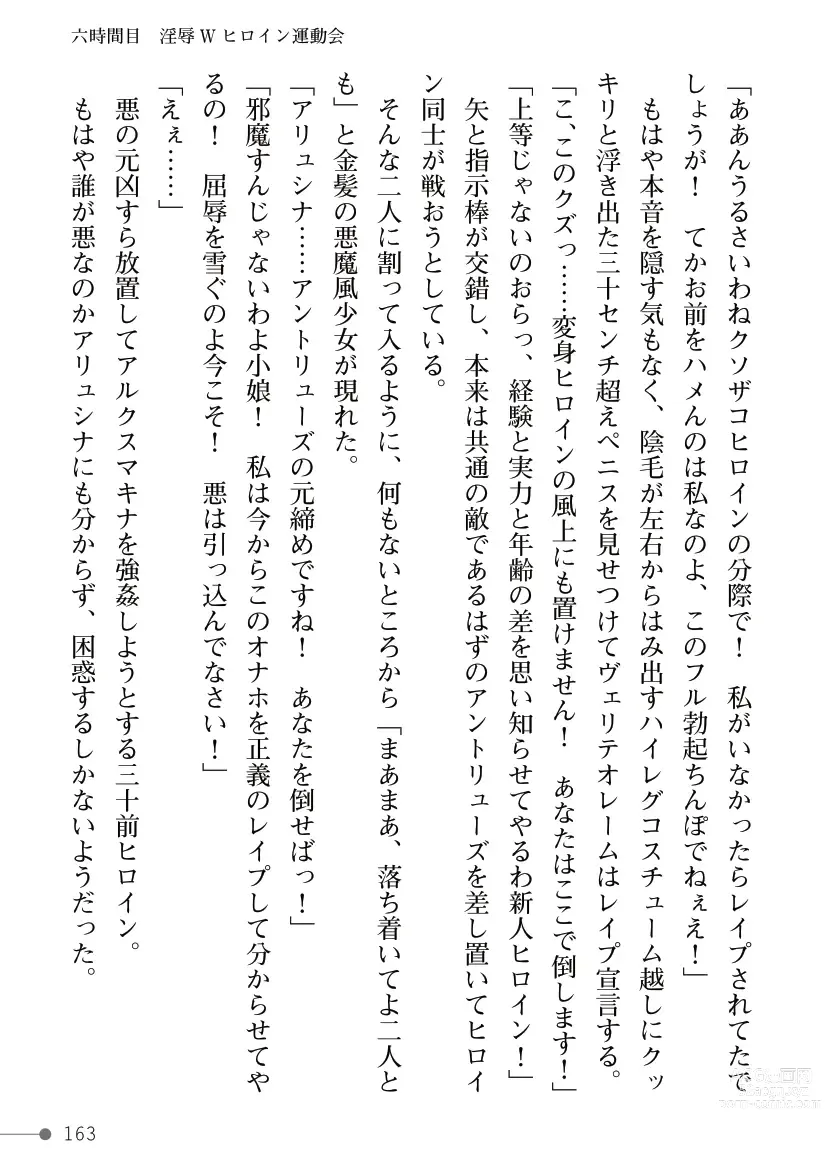 六時間目　淫辱Wヒロイン運動会
「ああんうるさいわねクソザコヒロインの分際で！　私がいなかったらレイプされてたで
しょうが！　てかお前をハメんのは私なのよ、このフル勃起ちんぽでねぇえ！」
もはや本音を隠す気もなく、陰毛が左右からはみ出すハイレグコスチューム越しにクッ
キリと浮き出た三十センチ超えペニスを見せつけてヴェリテオレームはレイプ宣言する。
「こ、このクズっ……変身ヒロインの風上にも置けません！　あなたはここで倒します！」
「上等じゃないのおらっ、経験と実力と年齢の差を思い知らせてやるわ新人ヒロイン！」
矢と指示棒が交錯し、本来は共通の敵であるはずのアントリューズを差し置いてヒロイ
ン同士が戦おうとしている。
そんな二人に割って入るように、何もないところから「まあまあ、落ち着いてよ二人と
も」と金髪の悪魔風少女が現れた。
「アリュシナ……アントリューズの元締めですね！　あなたを倒せばっ！」
「邪魔すんじゃないわよ小娘！　私は今からこのオナホを正義のレイプして分からせてや
るの！　屈辱を雪ぐのよ今こそ！　悪は引っ込んでなさい！」
「えぇ……」
悪の元凶すら放置してアルクスマキナを強姦しようとする三十前ヒロイン。
もはや誰が悪なのかアリュシナにも分からず、困惑するしかないようだった。
163